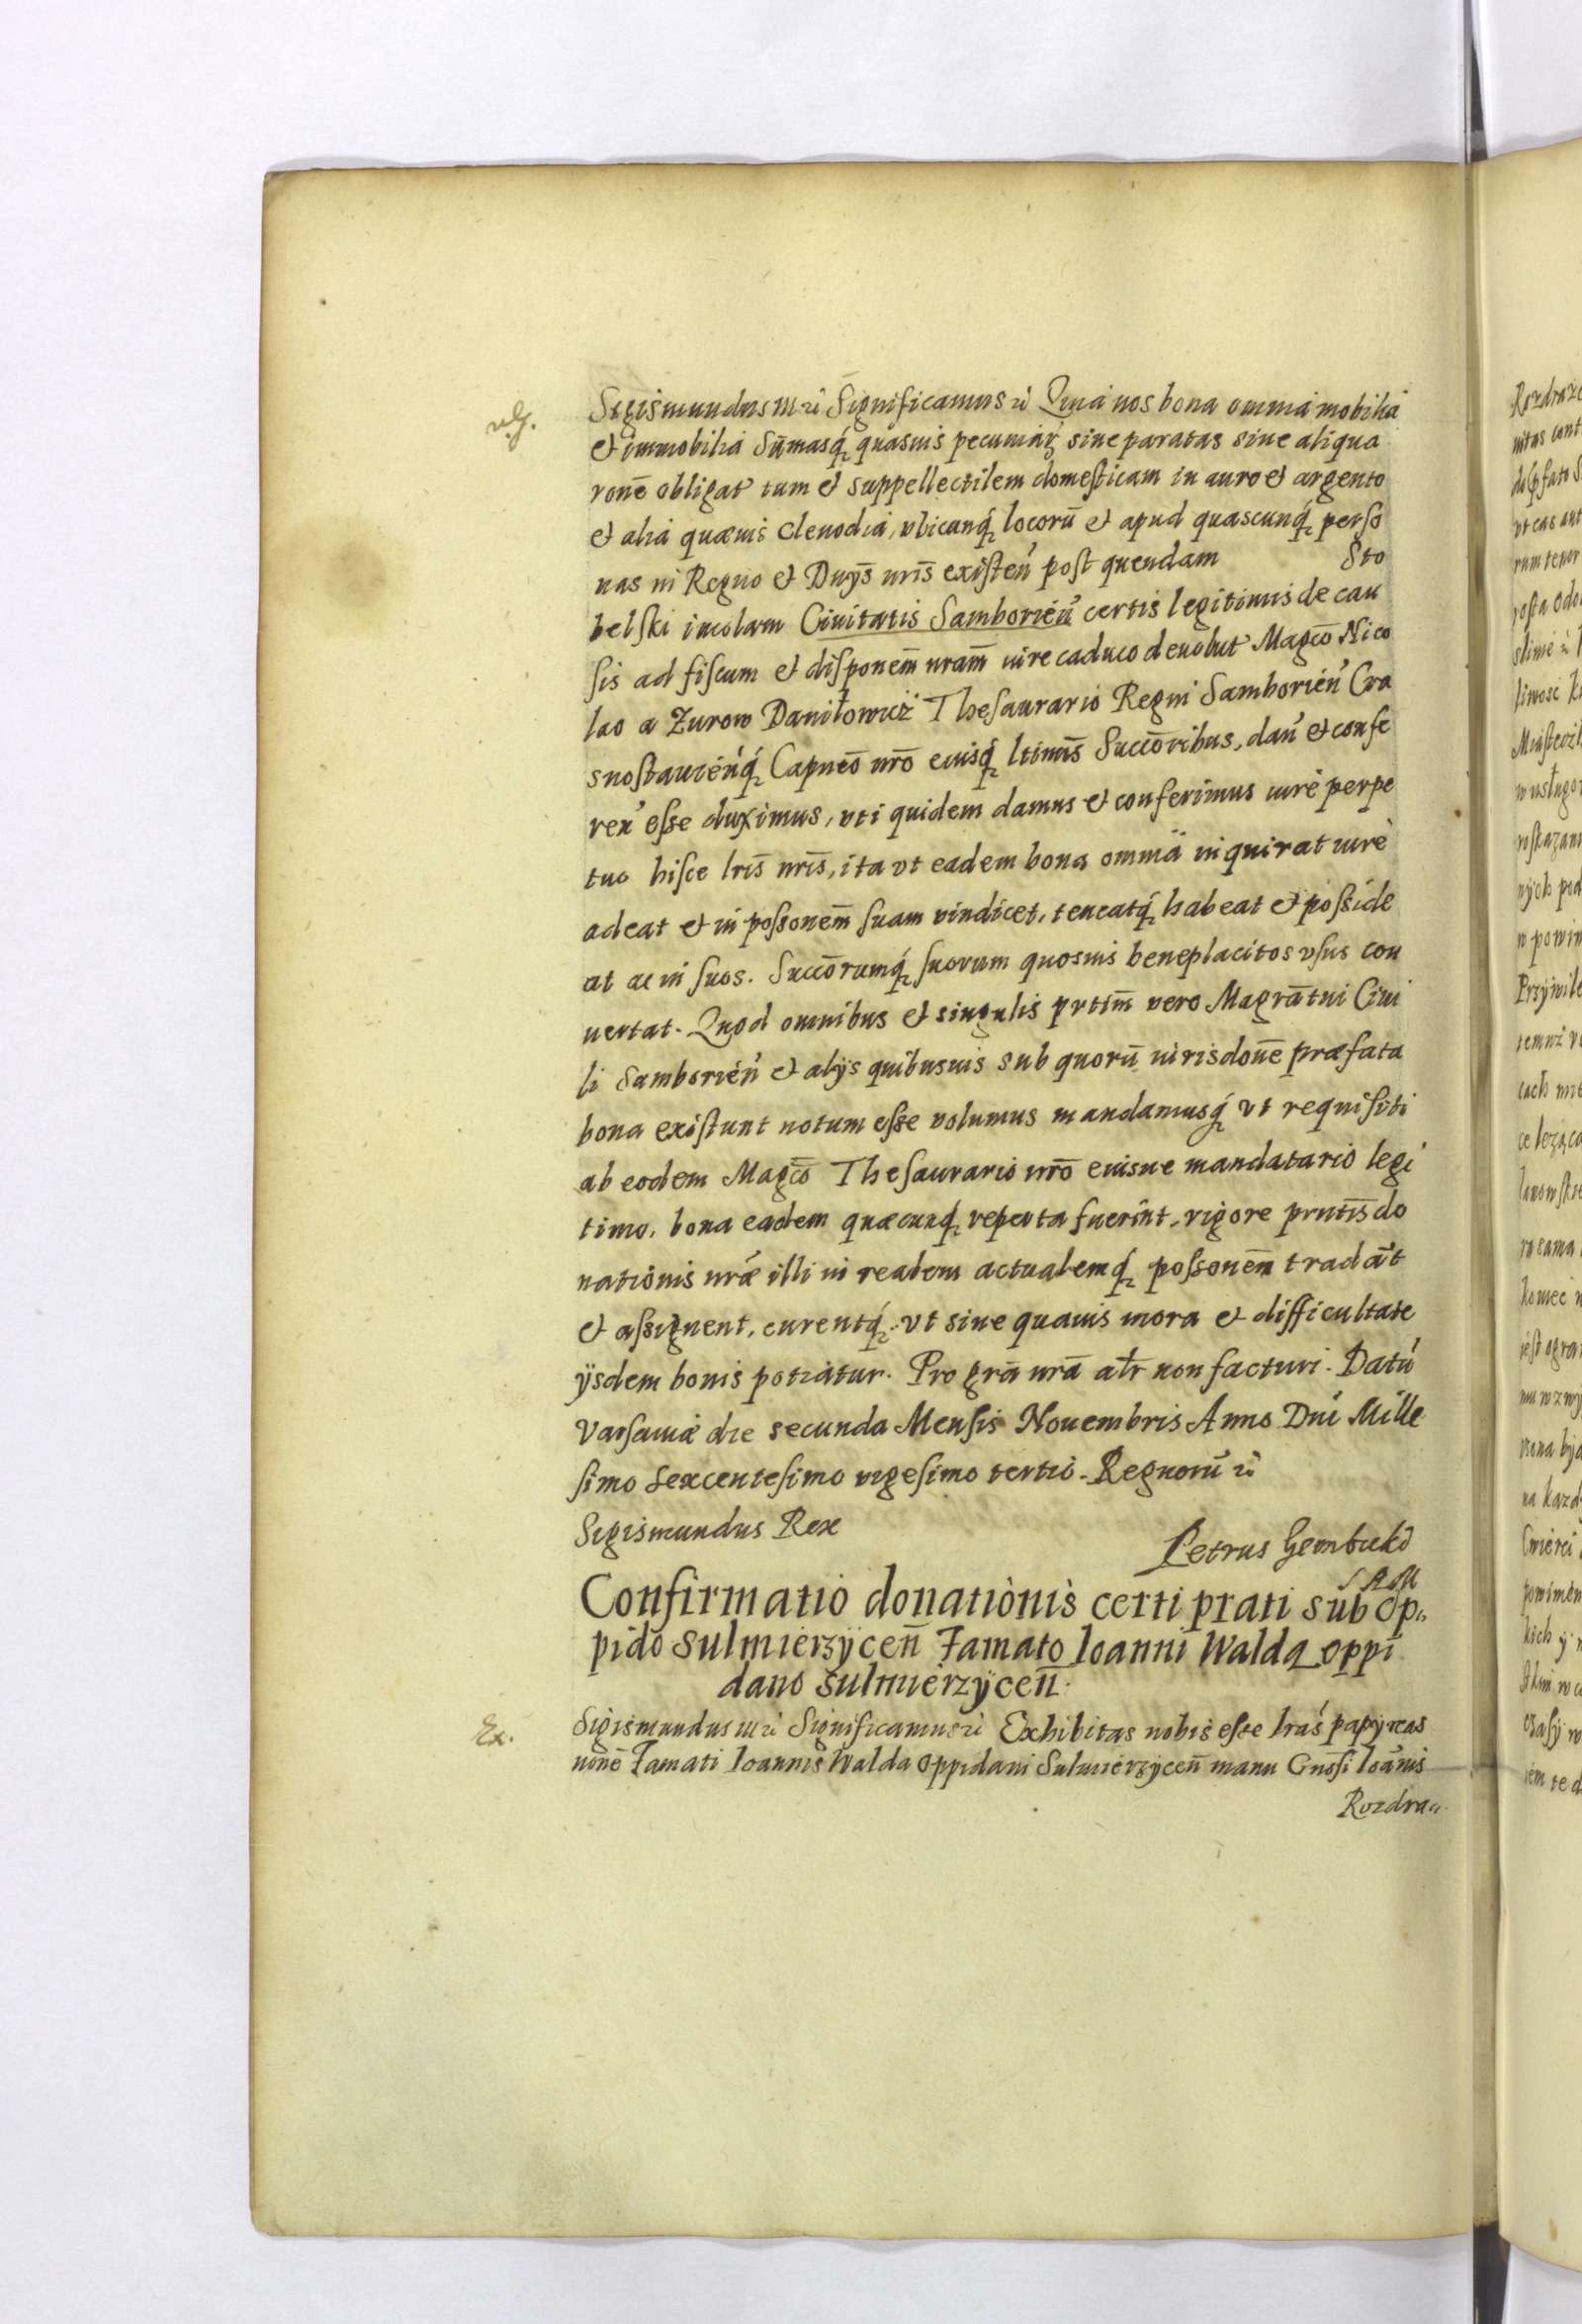 Sigismundus III ꝛc̃ Significamus ꝛc̃ Quia nos bona omnia mobilia
et immobilia Sum̃asq́ꝫ quasuis pecuniaꝝ siue paratas siue aliqua
ronẽ obligat̃ tum et suppellectilem domesticam in auro et argento
et alia quæuis Clenodia, vbicunq́ꝫ locorũ et apud quascunq́ꝫ perso
nas in Regno et Dnijs nr̃is existeñ post quendam Sto
belski incolam Ciuitatis Samborien̄ certis legitimis de cau
sis ad fiscum et disponem̃ nram̃ iure caduco deuolut̃ Magc̃o Nico
lao a Zurow Daniłowicz Thesaurario Regni Samborień Cra
snostauienq́ꝫ Capneõ nr̃o eiusq́ꝫ ltimĩs Succõribus, dañ et confe
reñ esse duximus, vti quidem damus et conferimus iure perpe
tuo hisce lris̃ nris̃, ita vt eadem bona omnia inquirat iure
adeat et in possonem̃ suam vindicet, teneatq́ꝫ habeat et posside
at ac in suos. Succõrumq́ꝫ suorum quosuis beneplacitos vsus con
uertat. Quod omnibus et singulis prtim̃ vero Magrãtui Ciui
li Samborień et alijs quibusuis sub quorũ iurisdonẽ præfata
bona existunt notum esse volumus mandamusq́ꝫ vt requisiti
ab eodem Magc̃o Thesaurario nr̃o eiusue mandatario legi
timo, bona eadem quæcunq́ꝫ reperta fuerint, rigore prntis̃ do
nationis nræ̃ illi in realem actualemq́ꝫ possonem̃ tradãt
et assignent, curentq́ꝫ vt sine quauis mora et difficultate
ijsdem bonis potiatur. Pro grã nrã alr̃ non facturi. Datũ
Varsauiæ die secunda Mensis Nouembris Anno Dnĩ Mille
simo Sexcentesimo vigesimo tertio. Regnorũ ꝛc̃
Sigismundus Rex
Petrus Gembicki
S R M
Confirmatio donationis certi prati sub Op„
pido Sulmierzÿceñ Famato Ioanni Walda oppi
dano sulmierzÿceñ.
Ex.
Sigismundus III ꝛc̃ Significamus ꝛc̃ Exhibitas nobis esse lrás papÿreas
ninẽ Famati Ioannis Walda Oppidani Sulmierzÿceñ manu Gnõsi Ioãnis
Rozdra„